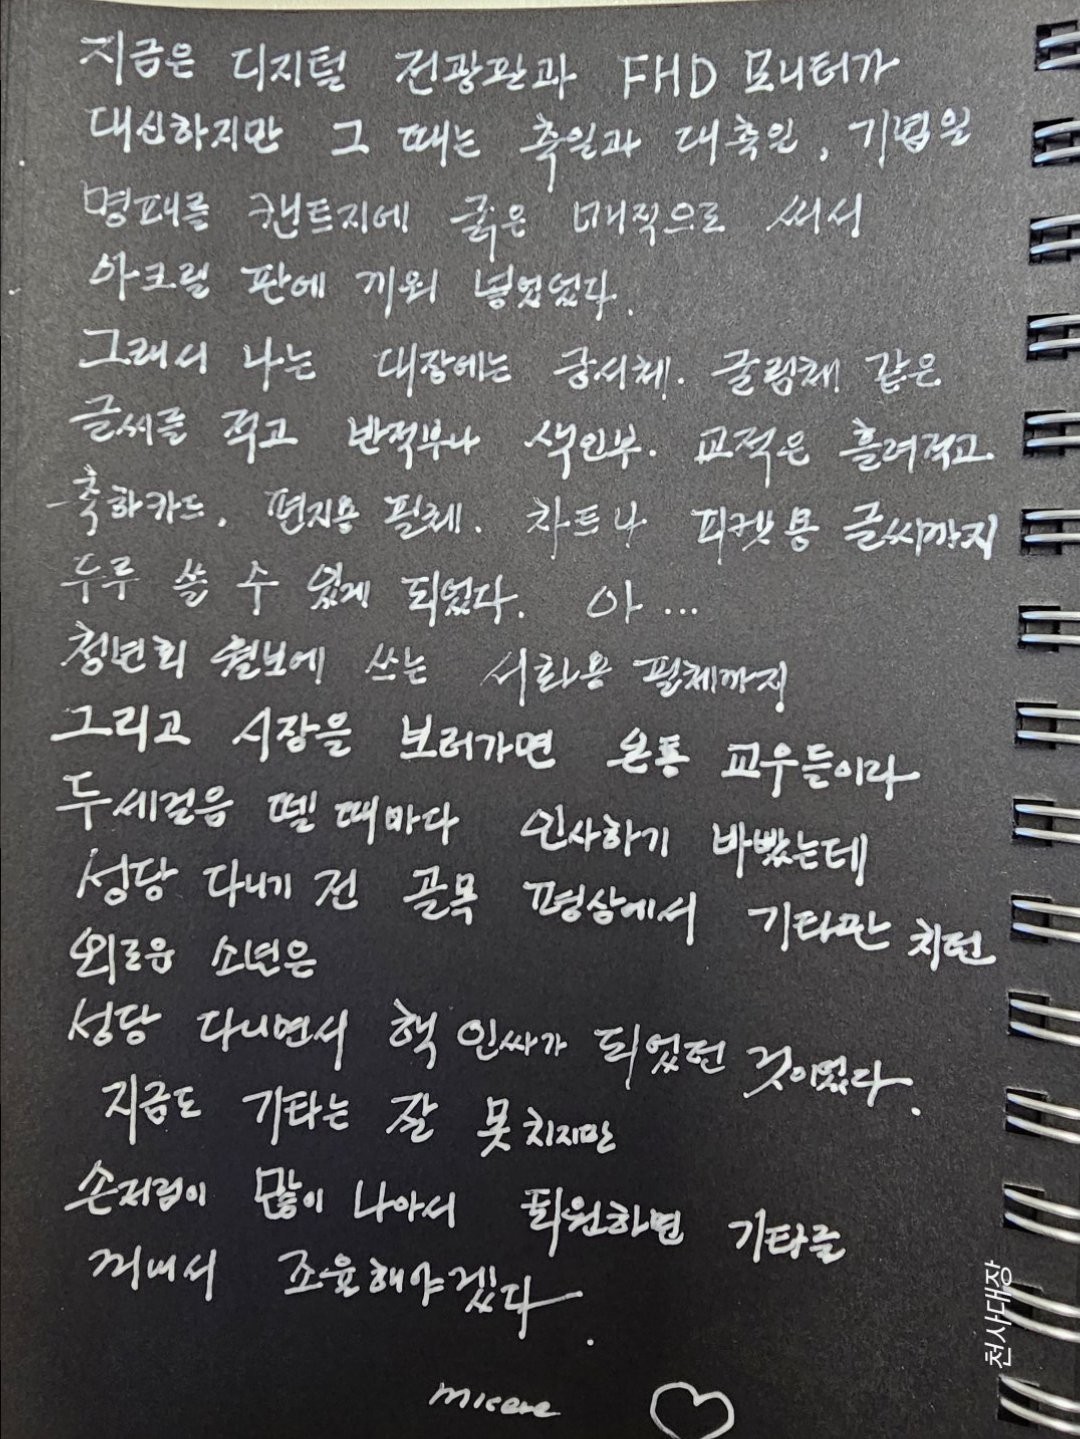 지금은 디지털 전광판과 FHD 모니터가
대신하지만 그 때는 축일과 대축일, 기념일
명패를 켄트지에 굵은 매직으로 써서
아크릴 판에 끼워 넣었었다.
그래서 나는 대장에는 궁서체. 굴림체 같은
글씨를 적고 반적부나 색인부. 교적은 흘려적고
축하카드, 편지용 필체. 차트나 피켓용 글씨까지
두루 쓸 수 있게 되었다. 아...
청년회 월보에 쓰는 서화용 필체까지
그리고 시장을 보러가면 온통 교우들이라
두세걸음 뗄 때마다 인사하기 바빴는데
성당 다니기 전 골목 평상에서 기타만 치던
외로운 소년은
성당 다니면서 핵 인싸가 되었던 것이었다.
지금도 기타는 잘 못치지만
손저림이 많이 나아서 퇴원하면 기타를
꺼내서 조율해야겠다.
천사대장